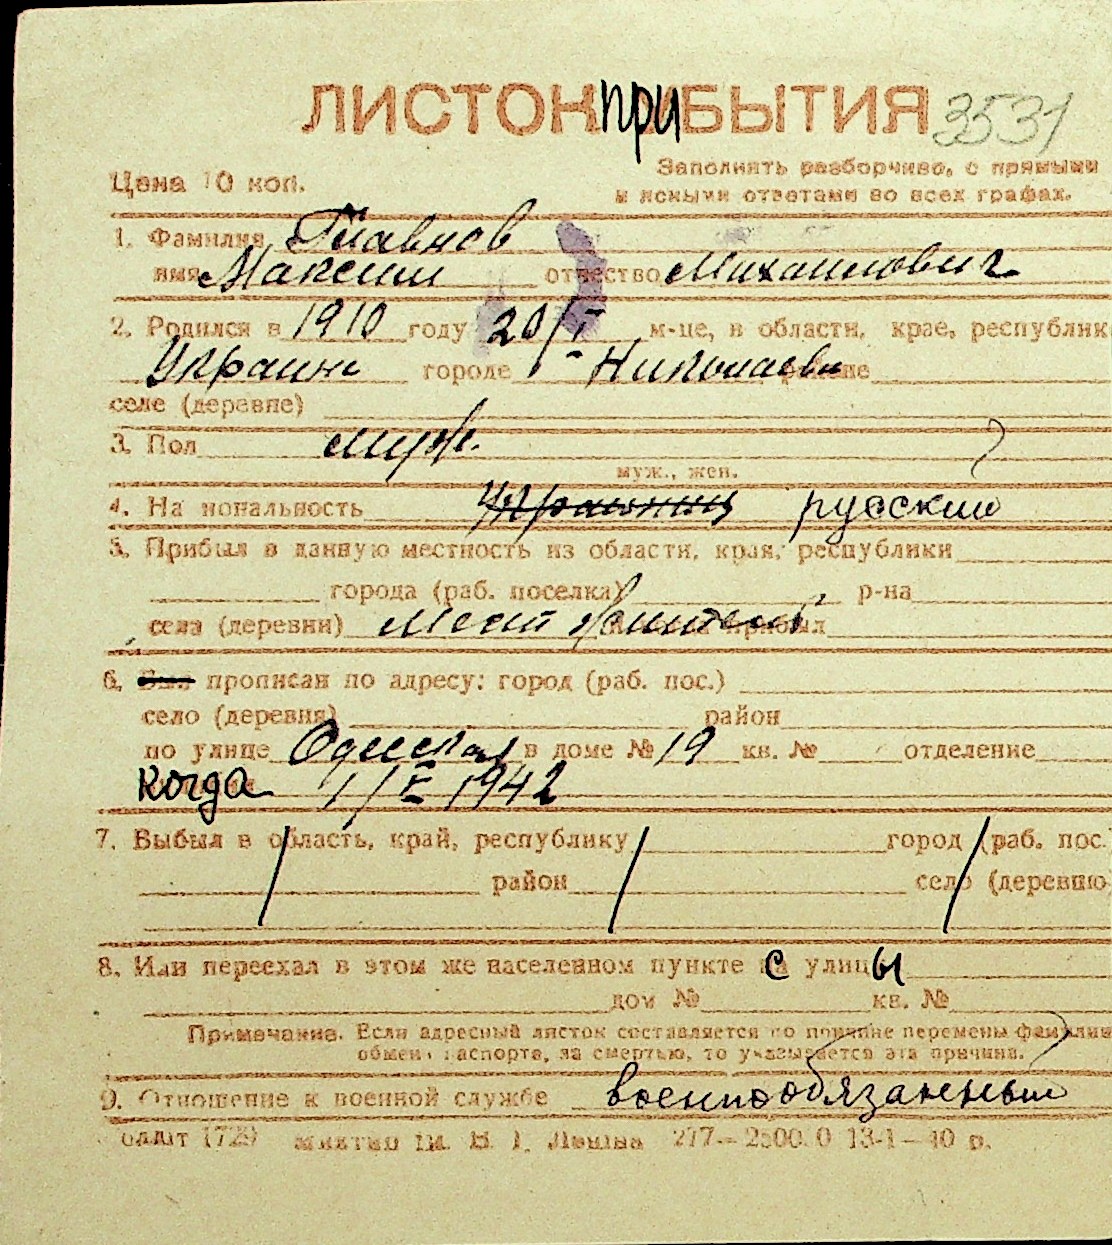 ЛИСТОК ПРИБЫТИЯ 3531
Цена 10 коп.
Заполнять разборчиво, с прямыми
и ясными ответами во всех графах.
1. Фамилия Главнов
имя Максим отчество Михайлович
2. Родился в 1910 году 20/I м-це, в области, крае, республик
Украине городе Николаеве
селе (деревне)
3. Пол муж.
муж., жен.
4. Национальность русский
5. Прибыл в данную местность из области, края, республики
города (раб. поселка) р-на
села (деревни) Мест житель
6. прописан по адресу: город (раб. пос.)
село (деревня) район
по улице Одесская в доме № 19 кв. № отделение
когда 1942
7. Выбыл в область, край, республику город (раб. пос.
район село (деревню
8. Или переехал в этом же населенном пункте с улицы
дом № кв. №
Примечание. Если адресный листок составляется по причине перемены фамилии
обмена паспорта, за смертью, то указывается эта причина.
9. Отношение к военной службе военнообязанный
им. В. І. Леніна 277—2500.0 13-1—40 р.